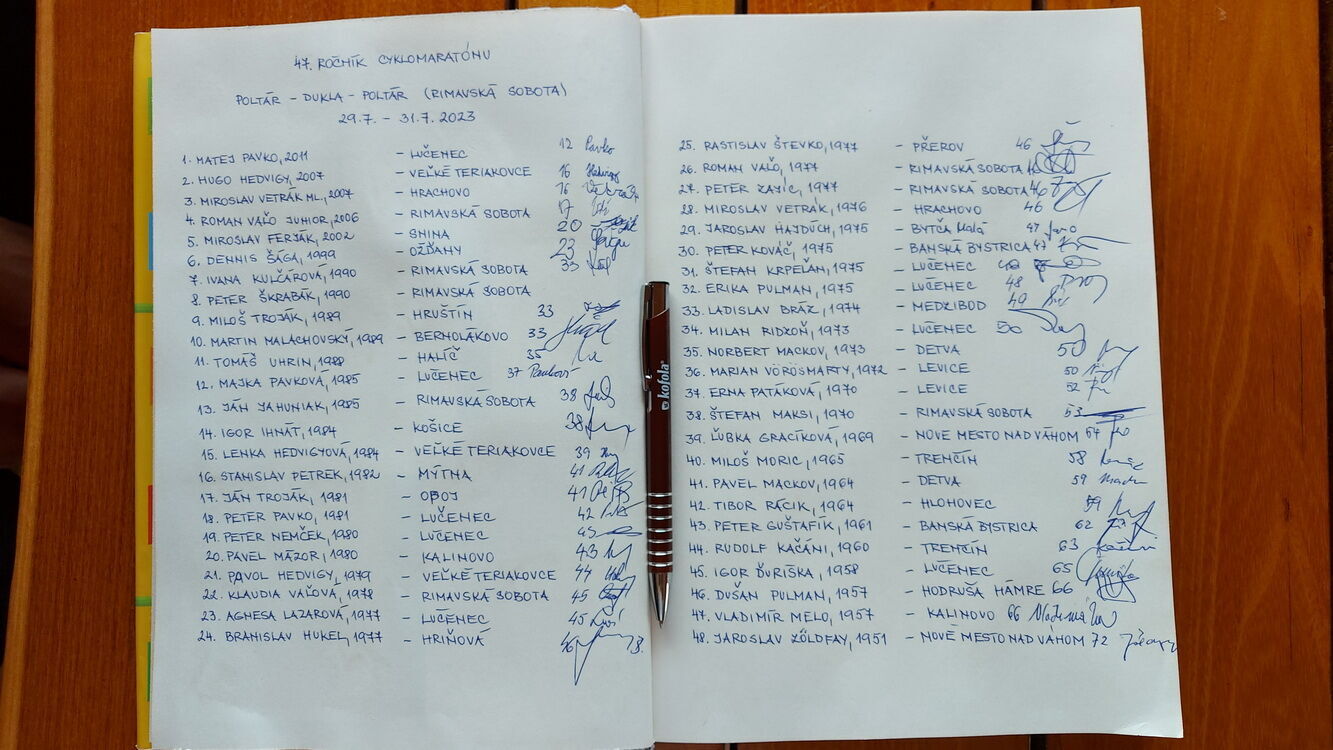 47. ROČNÍK CYKLOMARATÓNU
POLTÁR - DUKLA - POLTÁR (RIMAVSKÁ SOBOTA)
29.7. - 31.7. 2023
1. MATEJ PAVKO, 2011 - LUČENEC 12 Pavko
2. HUGO HEDVIGY, 2007 - VEĽKÉ TERIAKOVCE 16 Hedvigy
3. MIROSLAV VETRÁK ML., 2007 - HRACHOVO 16
4. ROMAN VAĽO JUNIOR, 2006 - RIMAVSKÁ SOBOTA 17
5. MIROSLAV FERJÁK, 2002 - SNINA 20
6. DENNIS ŠÁGA, 1999 - OŽĎANY 23
7. IVANA KULČÁROVÁ, 1990 - RIMAVSKÁ SOBOTA 33
8. PETER ŠKRABÁK, 1990 - RIMAVSKÁ SOBOTA
9. MILOŠ TROJÁK, 1989 - HRUŠTÍN 33
10. MARTIN MALACHOVSKÝ, 1989 - BERNOLÁKOVO 33
11. TOMÁŠ UHRIN, 1988 - HALÍČ 35
12. MAJKA PAVKOVÁ, 1985 - LUČENEC 37 Pavková
13. JÁN JAHUNIAK, 1985 - RIMAVSKÁ SOBOTA 38
14. IGOR IHNÁT, 1984 - KOŠICE 38
15. LENKA HEDVIGYOVÁ, 1984 - VEĽKÉ TERIAKOVCE 39
16. STANISLAV PETREK, 1982 - MÝTNA 41
17. JÁN TROJÁK, 1981 - 41
18. PETER PAVKO, 1981 - LUČENEC 42
19. PETER NEMČEK, 1980 - LUČENEC
20. PAVEL MÁZOR, 1980 - KALINOVO 43
21. PAVOL HEDVIGY, 1979 - VEĽKÉ TERIAKOVCE 44
22. KLAUDIA VAĽOVÁ, 1978 - RIMAVSKÁ SOBOTA 45
23. AGNESA LAZAROVÁ, 1977 - LUČENEC 45
24. BRANISLAV HUKEL, 1977 - HRIŇOVÁ 46
25. RASTISLAV ŠTEVKO, 1977 - PŘEROV 46
26. ROMAN VAĽO, 1977 - RIMAVSKÁ SOBOTA
27. PETER ZAJÍC, 1977 - RIMAVSKÁ SOBOTA 46
28. MIROSLAV VETRÁK, 1976 - HRACHOVO 46
29. JAROSLAV HAJDÚCH, 1975 - BYTČA Malá 47
30. PETER KOVÁČ, 1975 - BANSKÁ BYSTRICA 47
31. ŠTEFAN KRPEĽAN, 1975 - LUČENEC
32. ERIKA PULMAN, 1975 - LUČENEC 48
33. LADISLAV BRÁZ, 1974 - MEDZIBOD 49
34. MILAN RIDZOŇ, 1973 - LUČENEC 50
35. NORBERT MACKOV, 1973 - DETVA 50
36. MARIAN VÖRÖSMARTY, 1972 - LEVICE 50
37. ERNA PATÁKOVÁ, 1970 - LEVICE 52
38. ŠTEFAN MAKSI, 1970 - RIMAVSKÁ SOBOTA 53
39. ĽUBKA GRACÍKOVÁ, 1969 - NOVE MESTO NAD VÁHOM
40. MILOŠ MORIC, 1965 - TRENČÍN 58
41. PAVEL MACKOV, 1964 - DETVA 59
42. TIBOR RÁCIK, 1964 - HLOHOVEC 59
43. PETER GUŠTAFÍK, 1961 - BANSKÁ BYSTRICA 62
44. RUDOLF KAČÁNI, 1960 - TRENČÍN 63
45. IGOR ĎURIŠKA, 1958 - LUČENEC 65
46. DUŠAN PULMAN, 1957 - HODRUŠA HÁMRE 66
47. VLADIMÍR MELO, 1957 - KALINOVO 66
48. JAROSLAV ZÖLDFAY, 1951 - NOVÉ MESTO NAD VÁHOM 72
kofola